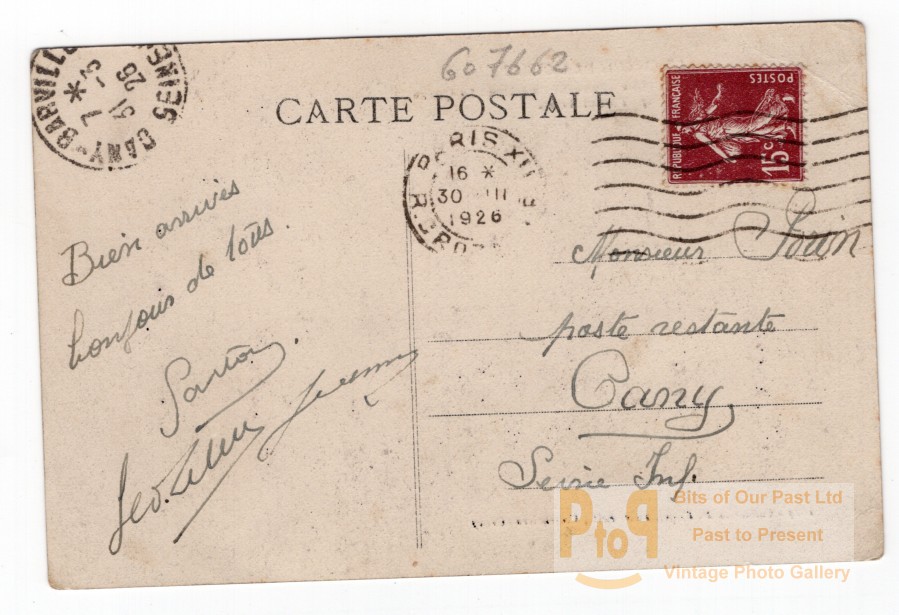 607662
CARTE POSTALE
CANY-BARVILLE
7 * 31 -3 26
PARIS XII
16 *
30 III
1926
REPUBLIQUE FRANÇAISE
POSTES
15 c
Bien arrivés
bonjour de tous.
Monsieur
poste restante
Cany
Seine Inf.
PtoP
Bits of Our Past Ltd
Past to Present
Vintage Photo Gallery